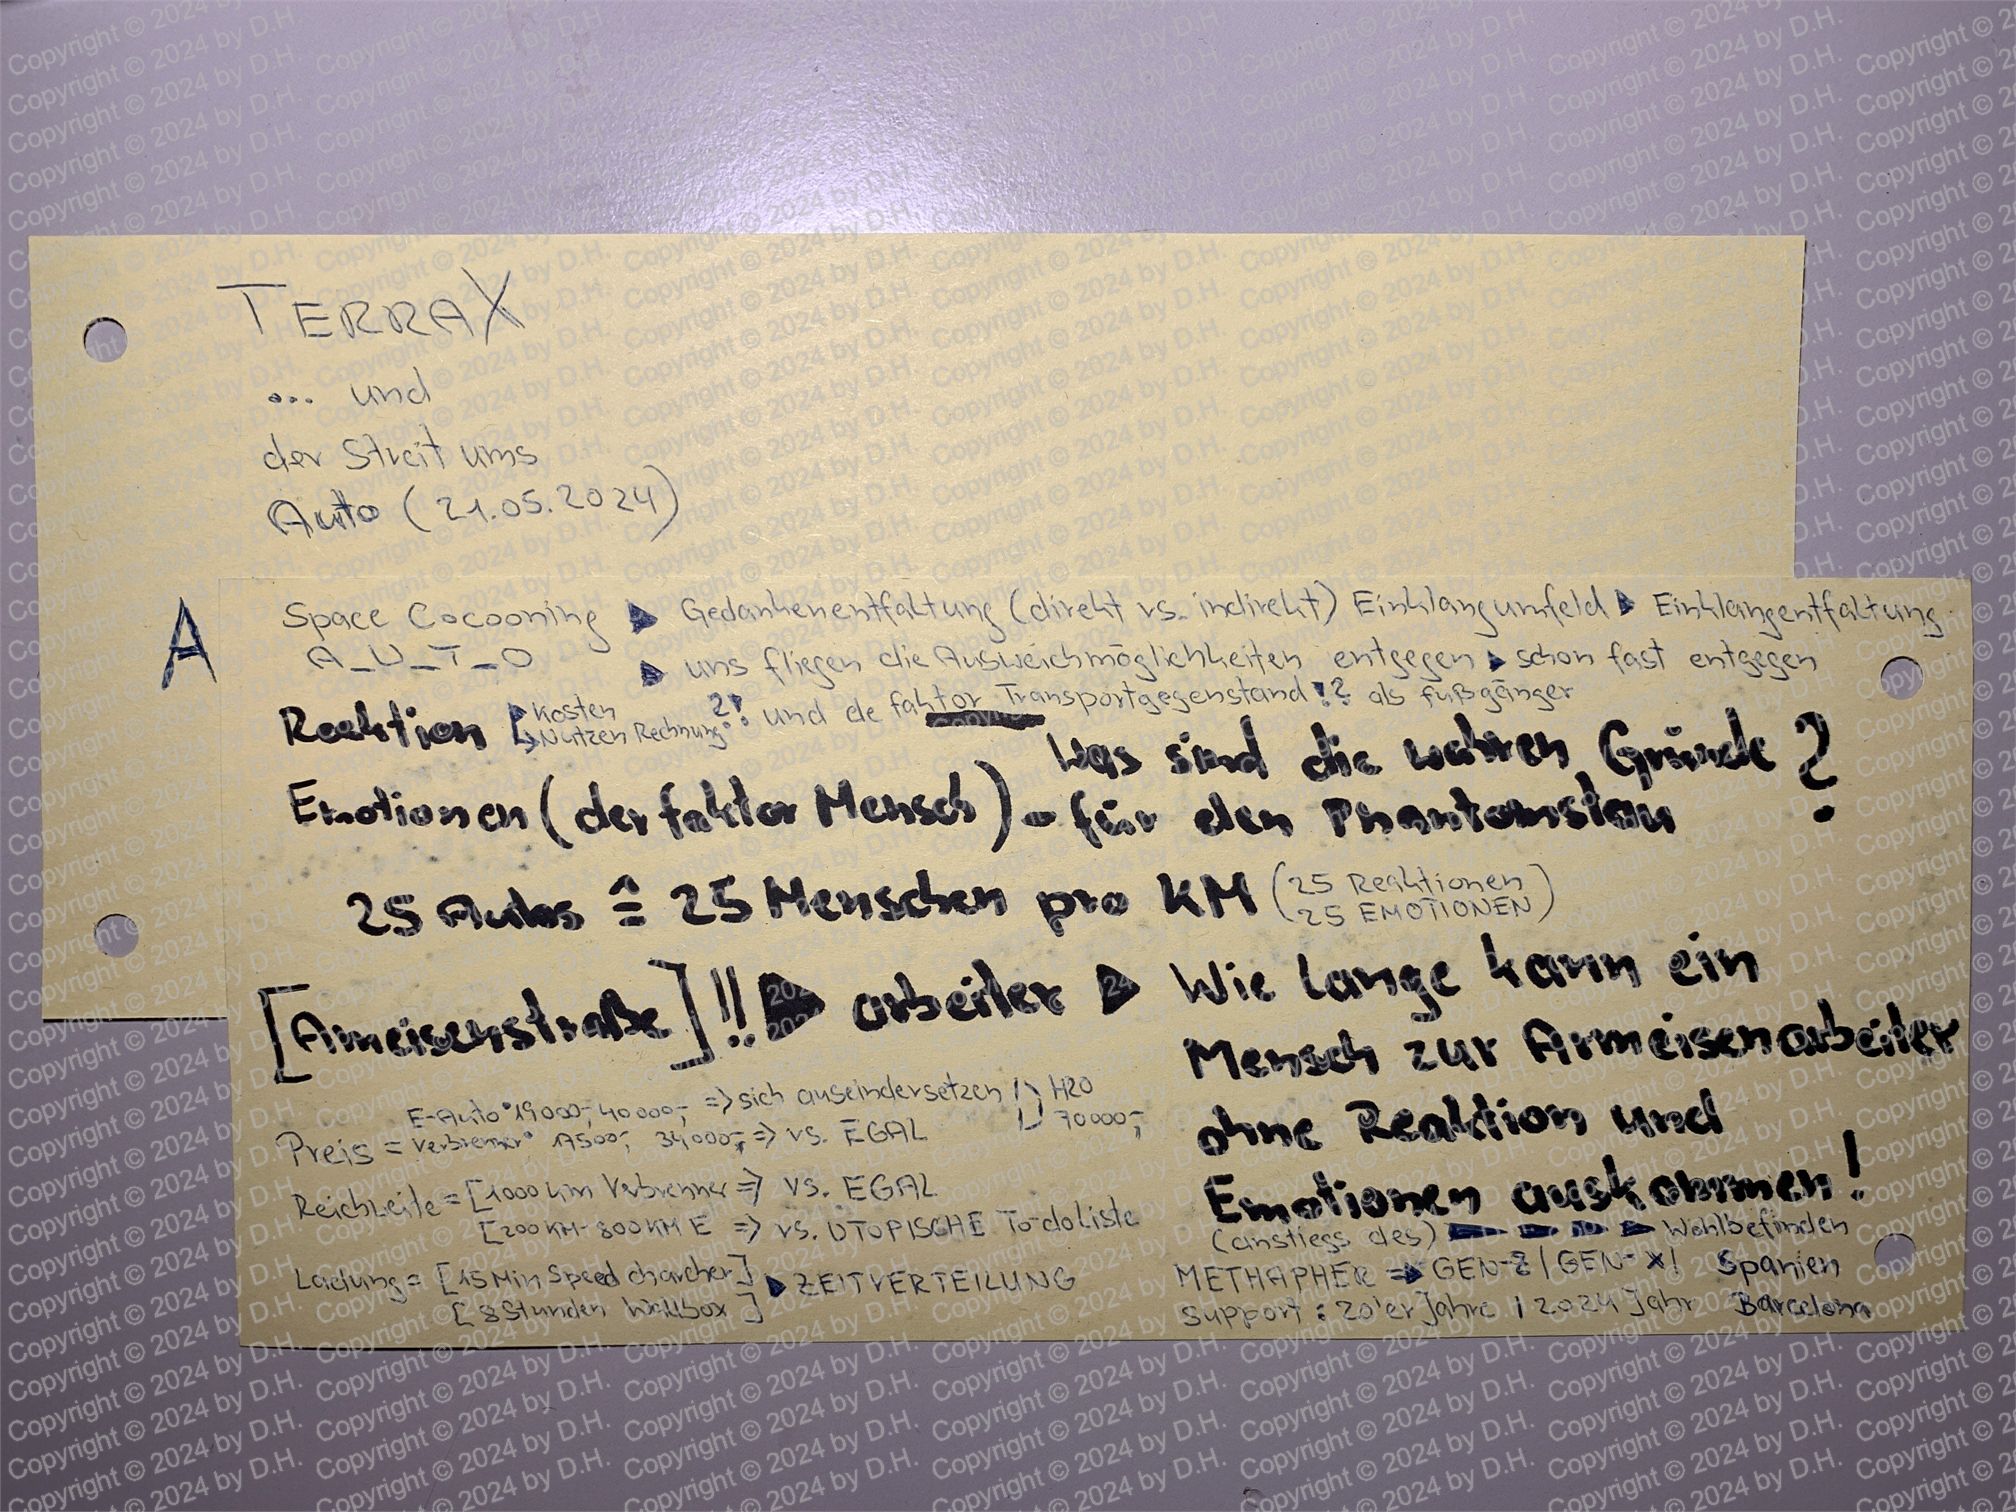 TERRAX
... und
der Streit ums
Auto (21.05.2024)
A
Space Cocooning ▶ Gedankenentfaltung (direkt vs. indirekt) Einklangumfeld ▶ Einklangentfaltung
A_U_T_O ▶ uns fliegen die Ausweichmöglichkeiten entgegen ▶ schon fast entgegen
Reaktion [Kosten Nutzen Rechnung?! und de faktor Transportgegenstand!? als fußgänger
Was sind die wahren Gründe ?
Emotionen (der faktor Mensch) - für den Phantomstau
25 Autos ≙ 25 Menschen pro KM (25 Reaktionen
25 EMOTIONEN)
[Ameisenstraße]!! ▶ arbeiter ▶ Wie lange kann ein
Mensch zur Armeisenarbeiter
ohne Reaktion und
Emotionen auskommen!
(anstiegs des) Wohlbefinden
METHAPHER => GEN-Z / GEN-X! Spanien
Support : 20'er Jahre / 2024 Jahr Barcelona
E-Auto 19000,- 40000,- => sich auseindersetzen H2O
70000,-
Preis = Verbrenner 17500,- 34000,- => vs. EGAL
Reichweite = [1000 km Verbrenner => vs. EGAL
[200KM-800KM E => vs. UTOPISCHE To-do liste
Ladung = [15 Min Speed charcher] ▶ ZEITVERTEILUNG
[8 Stunden Wallbox]
Copyright © 2024 by D.H.